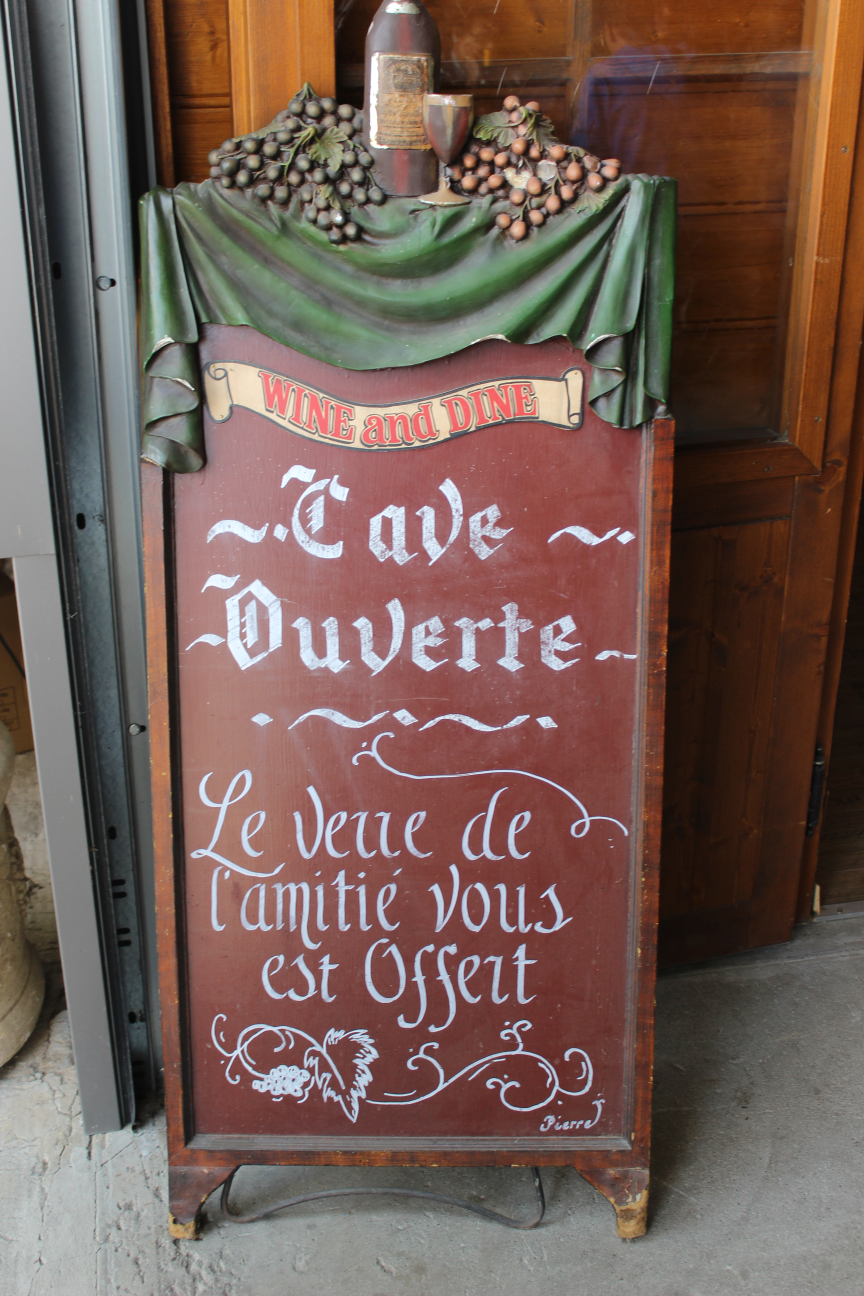 WINE and DINE
Cave
Ouverte
Le verre de
l'amitié vous
est Offert
Pierre